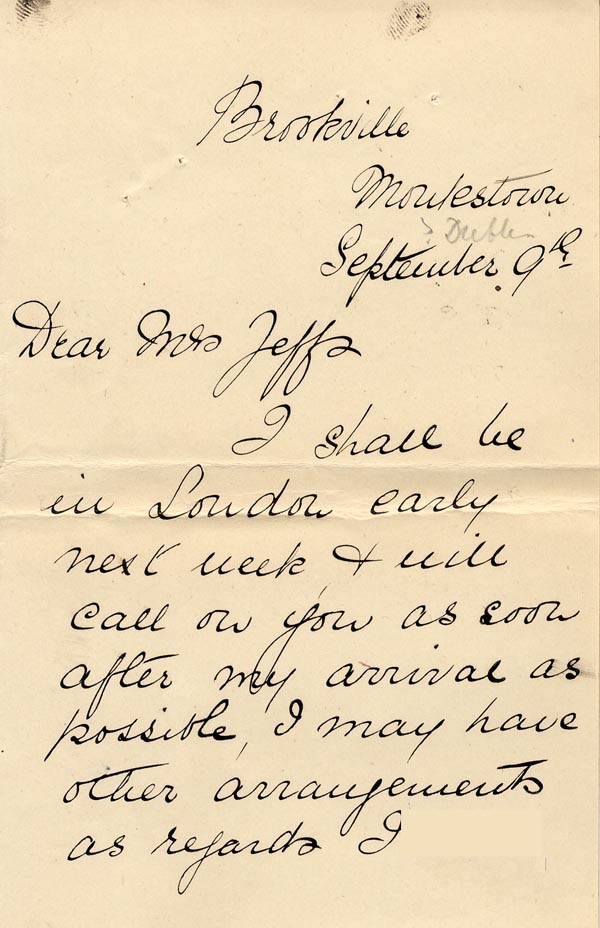 Brookville
Monkstown
? Dublin
September 9th
Dear Mrs Jeffs
I shall be
in London early
next week & will
call on you as soon
after my arrival as
possible, I may have
other arrangements
as regards I